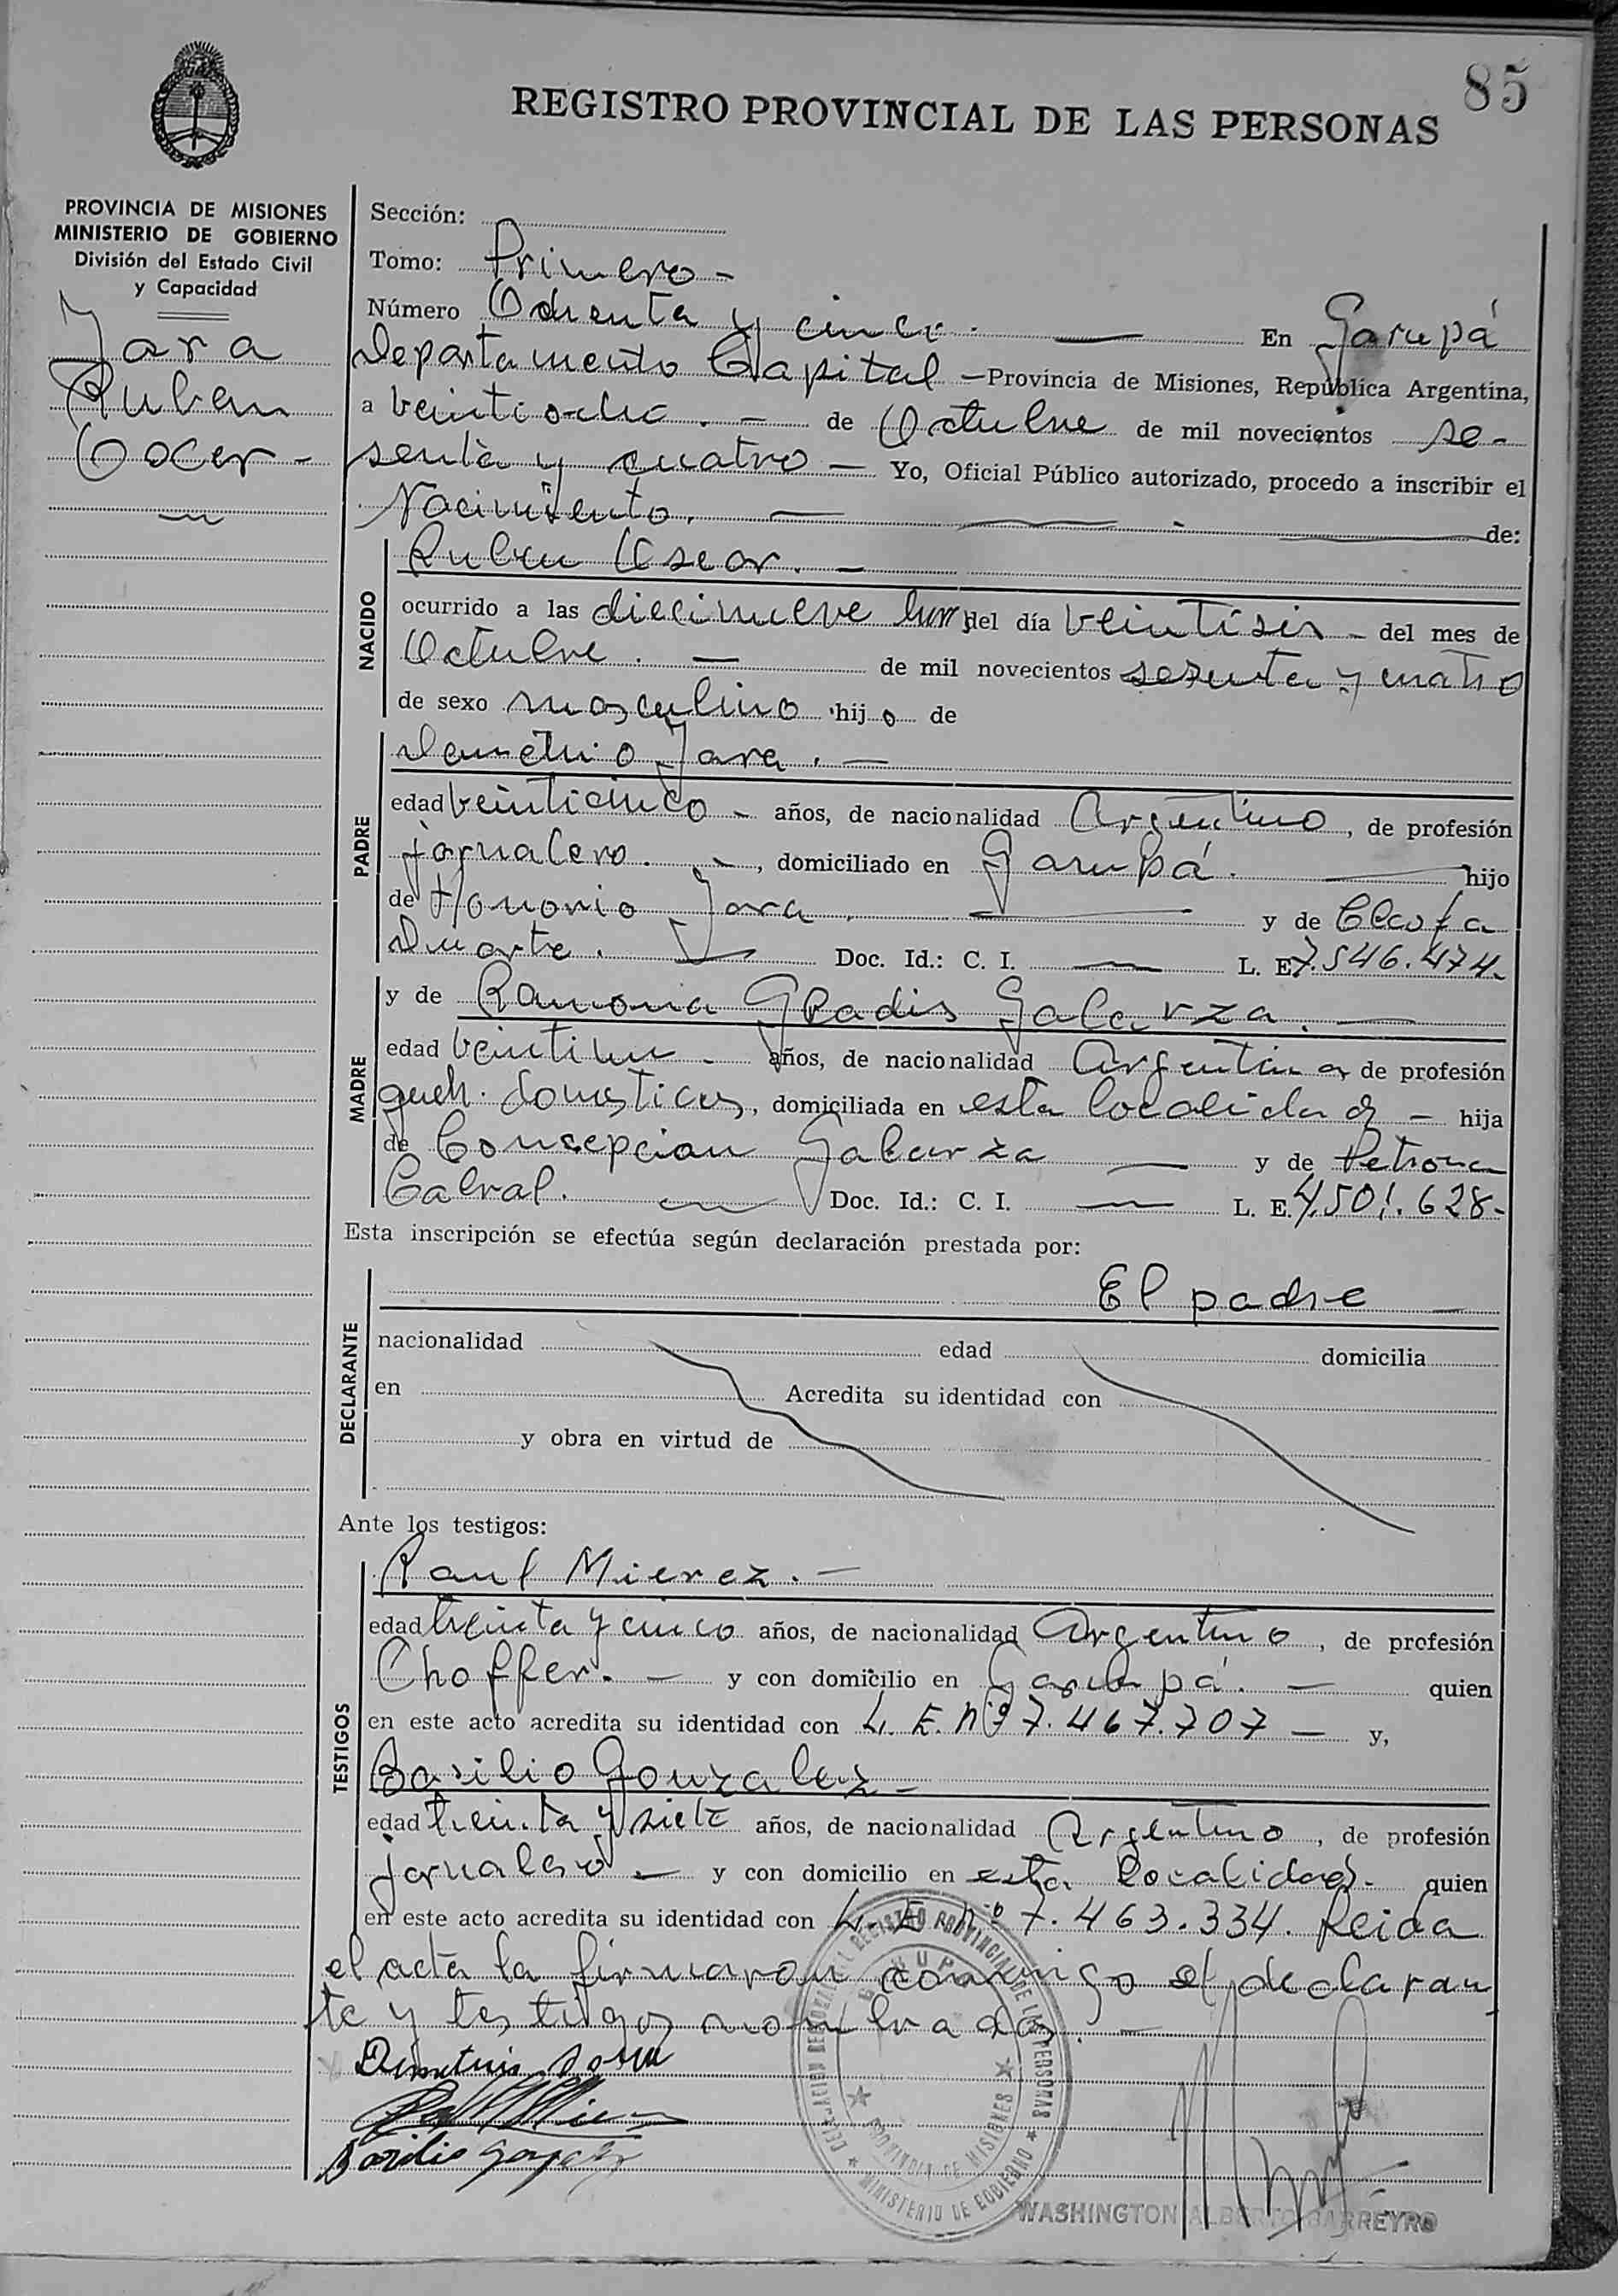 85
REGISTRO PROVINCIAL DE LAS PERSONAS
PROVINCIA DE MISIONES
MINISTERIO DE GOBIERNO
División del Estado Civil
y Capacidad
Jara
Ruben
Oocer -
Sección:
Tomo: Primero -
Número Ochenta y cinco. — En Garupá
Departamento Capital - Provincia de Misiones, República Argentina,
a veintiocho. - de Octubre de mil novecientos se-
senta y cuatro - Yo, Oficial Público autorizado, procedo a inscribir el
Nacimiento. — de:
NACIDO
Ruben Oscar. -
ocurrido a las diecinueve hors del día veintiseis - del mes de
Octubre. — de mil novecientos sesenta y cuatro
de sexo masculino hijo de
PADRE
Demetrio Jara. —
edad veinticinco - años, de nacionalidad Argentino, de profesión
jornalero. -, domiciliado en Garupá. — hijo
de Honorio Jara. — y de Cleofa
Duarte. — Doc. Id.: C. I. — L. E. 7.546.474-
MADRE
y de Ramona Gladis Galarza. —
edad veintiun - años, de nacionalidad Argentina de profesión
queh. domesticos, domiciliada en esta localidad - hija
de Consepcion Galarza — y de Petrona
Cabral. — Doc. Id.: C. I. — L. E. 4.501.628-
Esta inscripción se efectúa según declaración prestada por:
DECLARANTE
El padre —
nacionalidad edad domicilia
en Acredita su identidad con
y obra en virtud de
Ante los testigos:
TESTIGOS
Raul Mierez. —
edad treinta y cinco años, de nacionalidad Argentino, de profesión
Choffer. - y con domicilio en Garupá. — quien
en este acto acredita su identidad con L. E. Nº 7.467.707 — y,
Basilio Gonzalez -
edad treinta y siete años, de nacionalidad Argentino, de profesión
jornalero - y con domicilio en esta localidad. quien
en este acto acredita su identidad con L. E. Nº 7.463.334. Leida
el acta la firmaron conmigo el declaran
te y testigos nombrados. —
Demetrio Jara
Basilio Gonzalez
DELEGACION REGIONAL DEL REGISTRO PROVINCIAL DE LAS PERSONAS
GARUPA
PROVINCIA DE MISIONES
MINISTERIO DE GOBIERNO
WASHINGTON ALBERTO BARREYRO